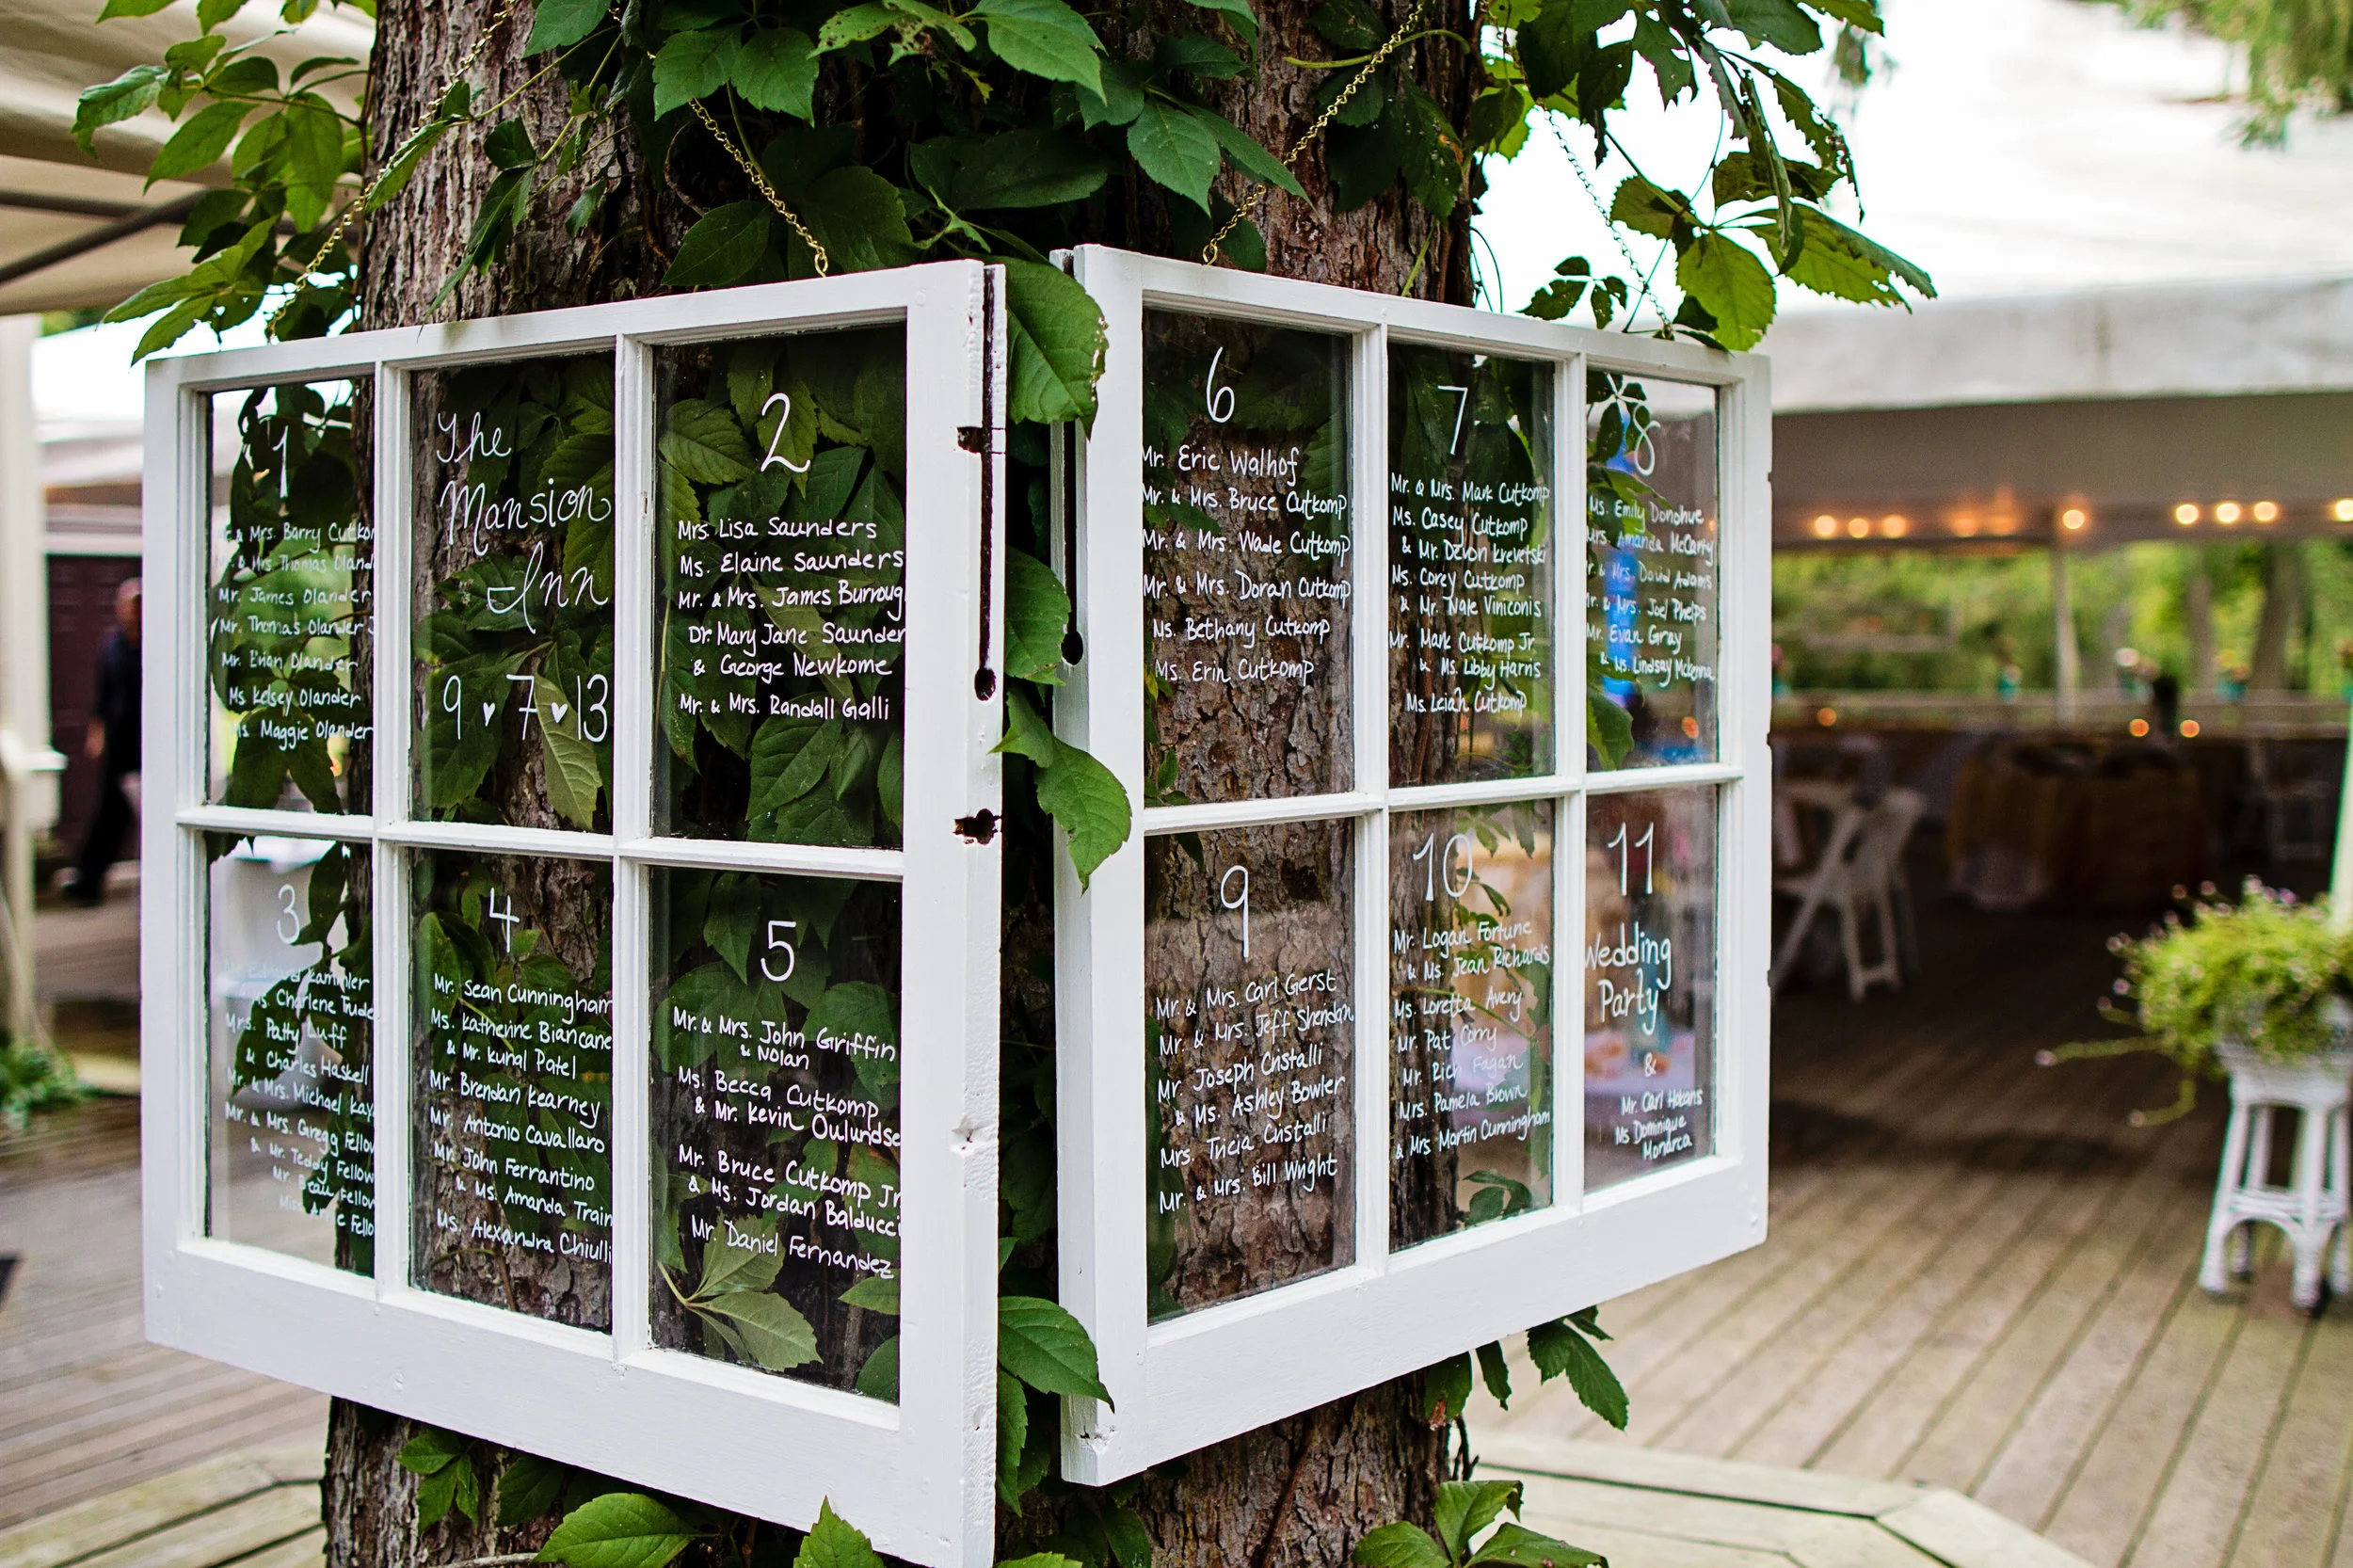 1
& Mrs. Barry
& Mrs. Thomas
Mr. James Olander
Mr. Thomas Olander
Mr. Olander
Ms Kelsey Olander
Ms. Maggie Olander
The
Mansion
Inn
9 ♥ 7 ♥ 13
2
Mrs. Lisa Saunders
Ms. Elaine Saunders
Mr. & Mrs. James Burroug
Dr. Mary Jane Saunder
& George Newkome
Mr. & Mrs. Randall Galli
3
Kammler
Ms. Charlene Trude
Mrs. Patty Luff
& Charles Haskell
Mr. & Mrs. Michael Kay
Mr. & Mrs. Gregg Fellow
& Mr. Teddy Fellow
Mr. Beau Fellow
Fello
4
Mr. Sean Cunningham
Ms. Katherine Biancane
& Mr. Kunal Patel
Mr. Brendan Kearney
Mr. Antonio Cavallaro
Mr. John Ferrantino
& Ms. Amanda Train
Ms. Alexandra Chiulli
5
Mr. & Mrs. John Griffin
& Nolan
Ms. Becca Cutkomp
& Mr. Kevin Oulundse
Mr. Bruce Cutkomp Jr
& Ms. Jordan Balducci
Mr. Daniel Fernandez
6
Mr. Eric Walhof
Mr. & Mrs. Bruce Cutkomp
Mr. & Mrs. Wade Cutkomp
Mr. & Mrs. Doran Cutkomp
Ms. Bethany Cutkomp
Ms. Erin Cutkomp
7
Mr. & Mrs. Mark Cutkomp
Ms. Casey Cutkomp
& Mr. Devon Krevetski
Ms. Corey Cutkomp
& Mr. Nate Viniconis
Mr. Mark Cutkomp Jr.
& Ms. Libby Harris
Ms. Leiah Cutkomp
8
Ms. Emily Donohue
Mrs. Amanda McCarty
Mr. & Mrs. David Adams
Mr. & Mrs. Joel Phelps
Mr. Evan Gray
& Ms. Lindsay McKenna
9
Mr. & Mrs. Carl Gerst
Mr. & Mrs. Jeff Sheridan
Mr. Joseph Cristalli
& Ms. Ashley Bowler
Mrs. Tricia Cristalli
Mr. & Mrs. Bill Wright
10
Mr. Logan Fortune
& Ms. Jean Richards
Ms. Loretta Avery
Mr. Pat Corry
Mr. Rich Fagan
Mrs. Pamela Brown
& Mrs Martin Cunningham
11
Wedding
Party
&
Mr. Carl
Ms Dominique
Monarca